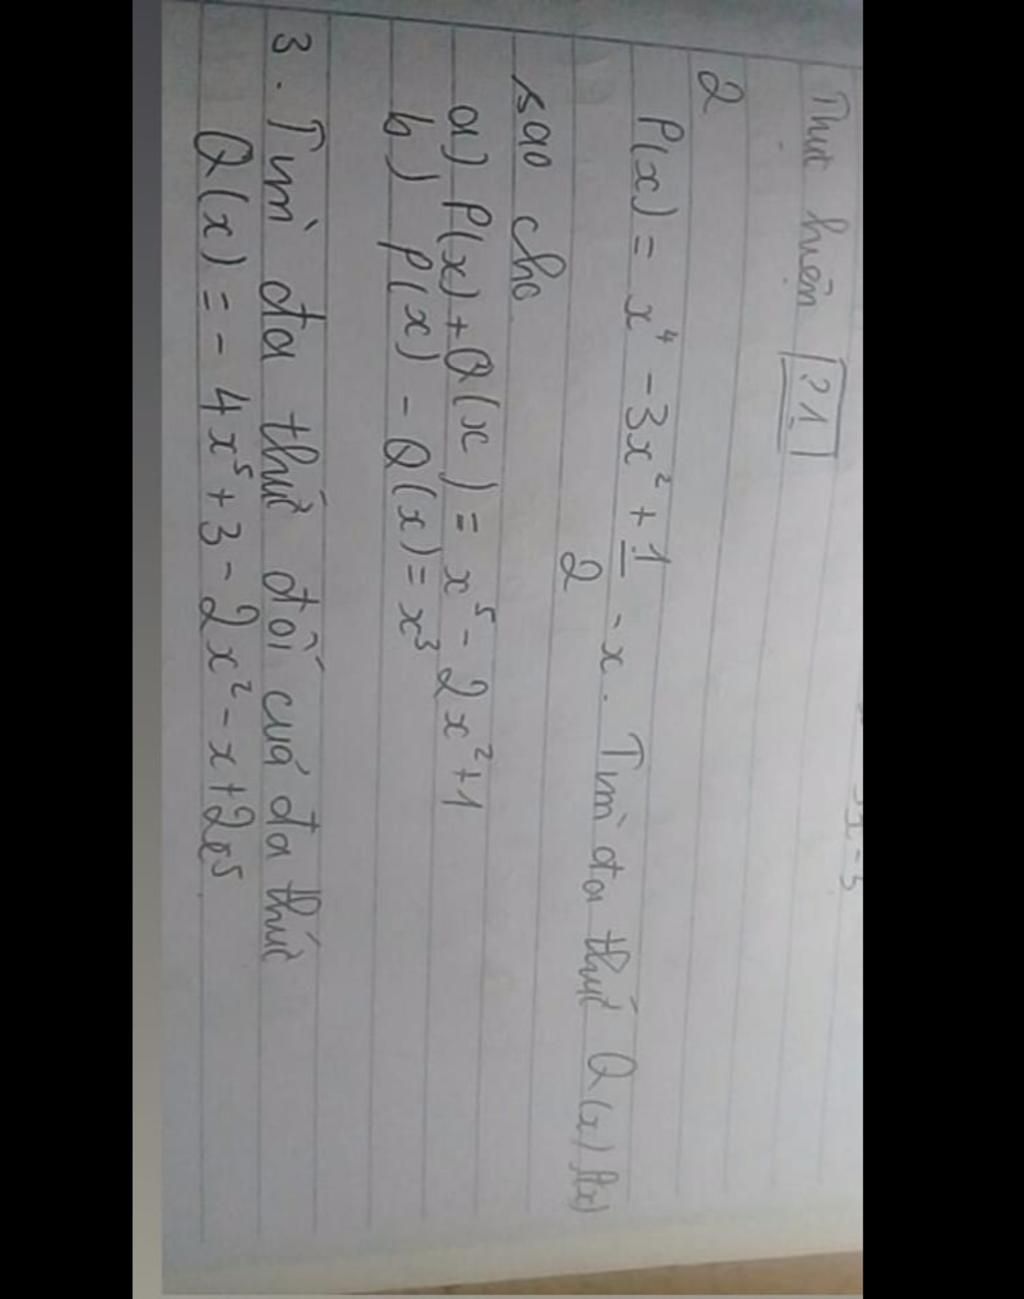 Thực hiện ?1
2
P(x) = x⁴ - 3x² + 1/2 - x. Tìm đa thức Q(x), R(x)
sao cho
a) P(x) + Q(x) = x⁵ - 2x² + 1
b) P(x) - Q(x) = x³
3. Tìm đa thức đối của đa thức
Q(x) = - 4x⁵ + 3 - 2x² - x + 2x⁵